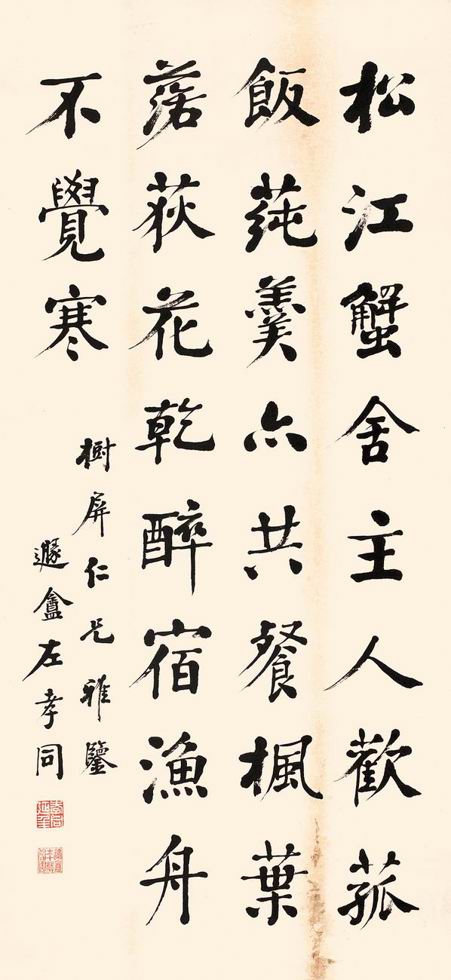 松江蟹舍主人歡菰
飯蓴羹亦共餐楓葉
落荻花乾醉宿漁舟
不覺寒
樹屏仁兄雅鑒
遯盦左孝同